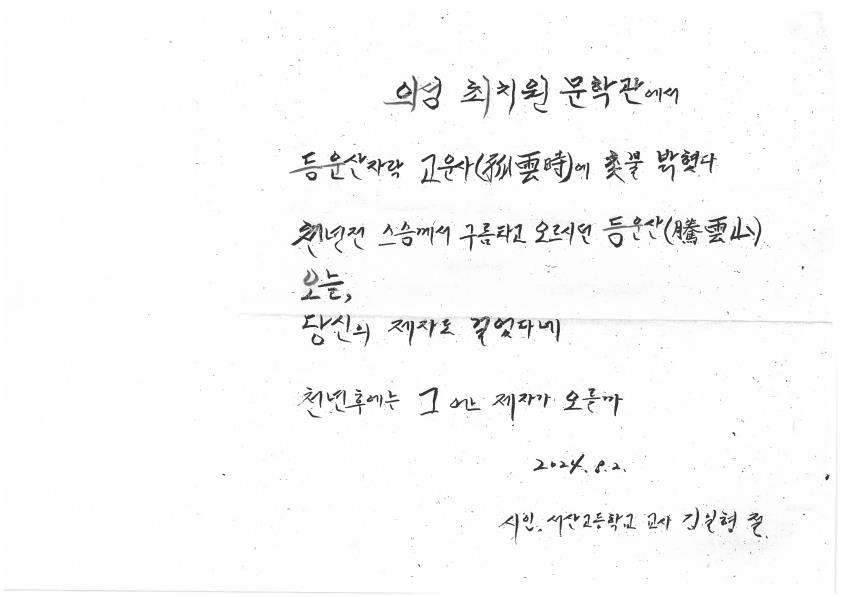 의성 최치원 문학관에서
등운산자락 고운사(孤雲時)에 촛불 밝혔다
천년전 스승께서 구름타고 오르시던 등운산(騰雲山)
오늘,
당신의 제자도 걸었다네
천년후에는 그 어느 제자가 오를까
2024. 8. 2.
시인, 서산고등학교 교사 김일형 절